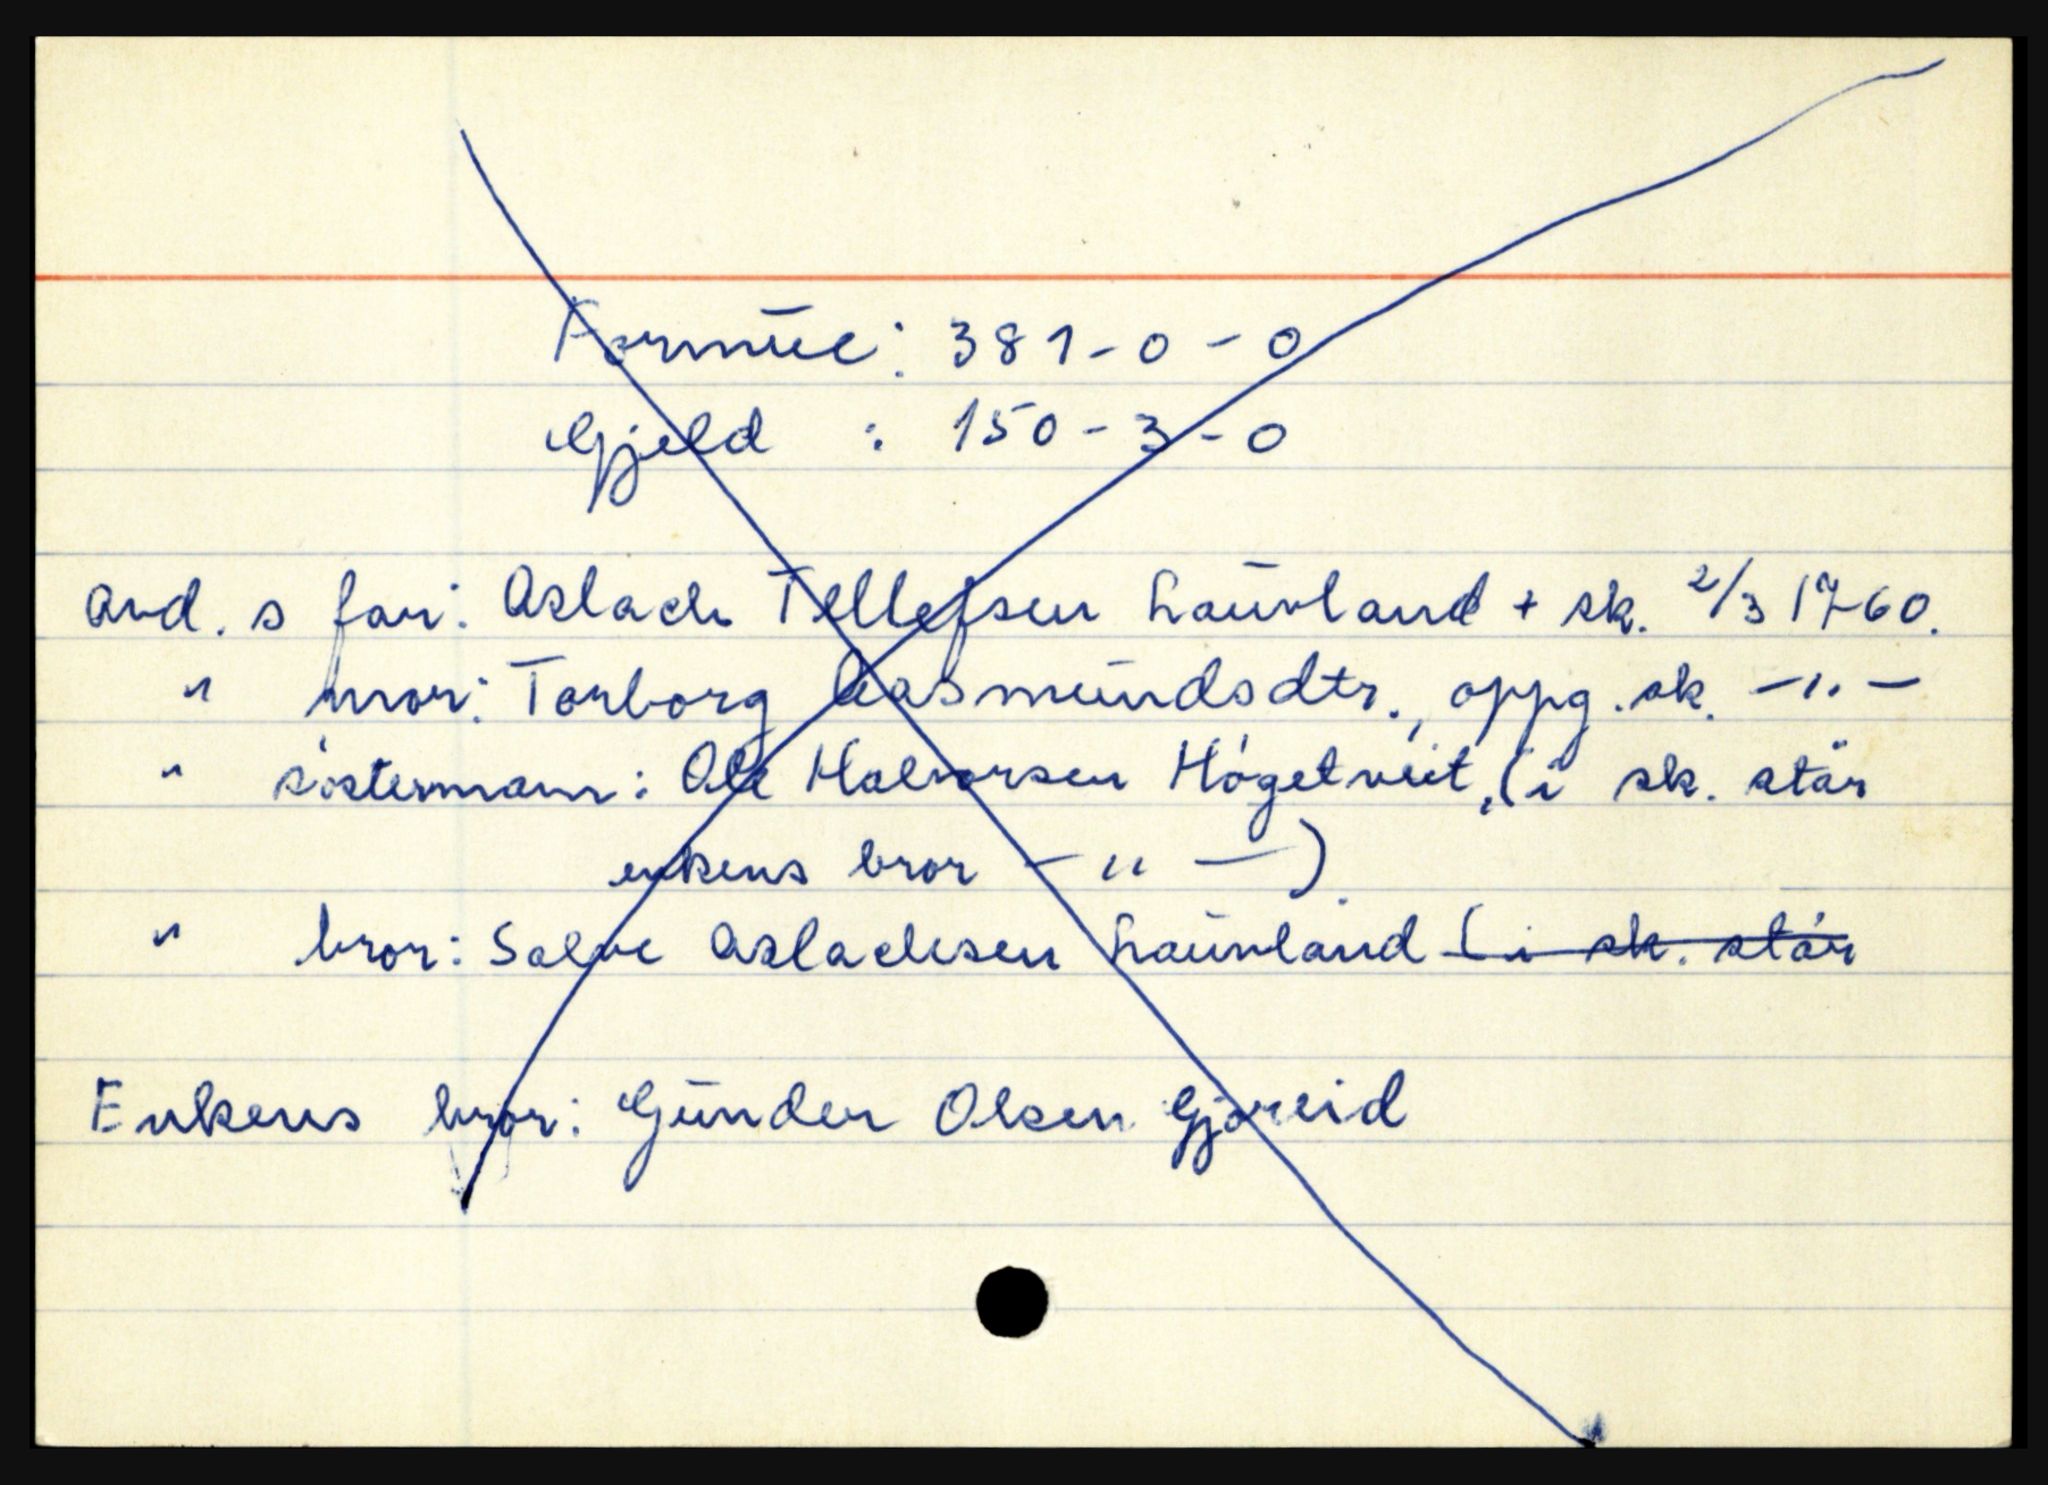 Formue: 381-0-0
Gjeld : 150-3-0
Avd. s far: Aslach Tellefsen Lauvland + sk. 2/3 1760.
" mor: Torborg Aasmundsdtr., oppg. sk. -"-
" söstermann: Ole Halvorsen Högetveit, (i sk. står
enkens bror -"-).
" bror: Salve Aslachsen Lauvland (i sk. står
Enkens bror: Gunder Olsen Gjereid